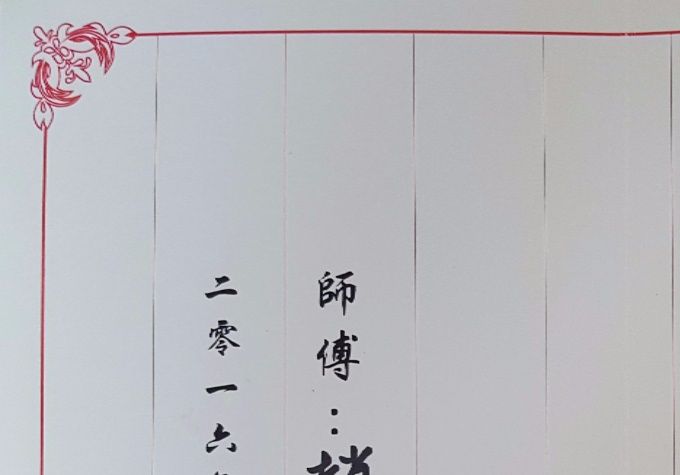 師傅：
二零一六